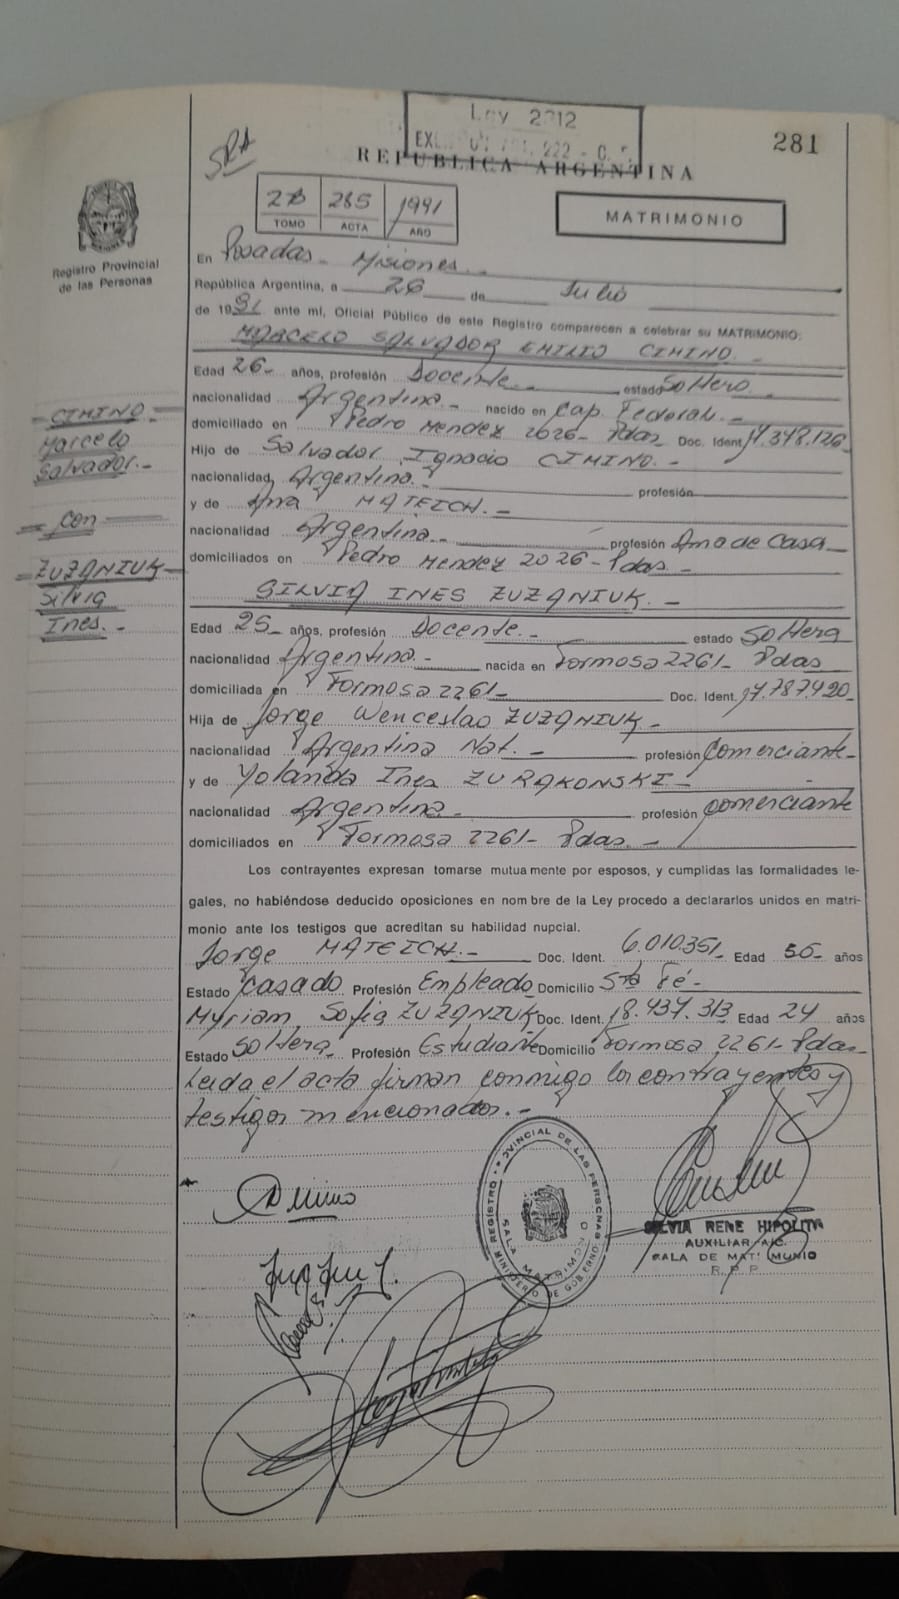 Ley 2312
281
SRA
REPUBLICA ARGENTINA
285 1991
TOMO ACTA AÑO
MATRIMONIO
Registro Provincial
de las Personas
En Posadas - Misiones. -
República Argentina, a 26 de Julio
de 1991 ante mí, Oficial Público de este Registro comparecen a celebrar su MATRIMONIO:
MARCELO SALVADOR EMILIO CIMINO. -
Edad 26- años, profesión Docente. estado Soltero. -
nacionalidad Argentina. - nacido en Cap. Federal. -
domiciliado en Pedro Mendez 2026- Pdas Doc. Ident. 17.348.126
Hijo de Salvador Ignacio CIMINO. -
nacionalidad, Argentina. - profesión
y de Ana MATEICH. -
nacionalidad Argentina. - profesión Ama de Casa
domiciliados en Pedro Mendez 2026- Pdas. -
CIMINO
Marcelo
Salvador. -
= con =
ZUZANIUK
Silvia
Ines. -
SILVIA INES ZUZANIUK. -
Edad 25- años, profesión Docente. - estado Soltera
nacionalidad Argentina. - nacida en Formosa 2261- Pdas
domiciliada en Formosa 2261- Doc. Ident. 17.787.420
Hija de Jorge Wenceslao ZUZANIUK. -
nacionalidad Argentina Nat. - profesión Comerciante-
y de Yolanda Ines ZURAKONSKI -
nacionalidad Argentina. - profesión Comerciante
domiciliados en Formosa 2261- Pdas. -
Los contrayentes expresan tomarse mutuamente por esposos, y cumplidas las formalidades le-
gales, no habiéndose deducido oposiciones en nombre de la Ley procedo a declararlos unidos en matri-
monio ante los testigos que acreditan su habilidad nupcial.
Jorge MATEICH. - Doc. Ident. 6.010.351- Edad 56- años
Estado Casado Profesión Empleado Domicilio Sta Fé-
Myriam Sofia ZUZANIUK Doc. Ident. 18.437.313 Edad 24 años
Estado Soltera Profesión Estudiante Domicilio Formosa 2261- Pdas
Leida el acta firman conmigo los contrayentes y
testigos mencionados. -
REGISTRO PROVINCIAL DE LAS PERSONAS
SALA MATRIMONIO
MINISTERIO DE GOBIERNO
SILVIA RENE HIPOLITA
AUXILIAR A/C.
SALA DE MATRIMONIO
R. P. P.